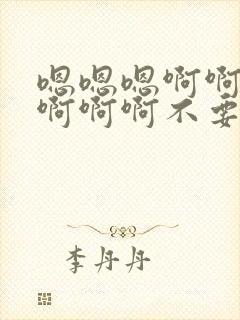 嗯嗯嗯啊啊
啊啊啊不要
李丹丹